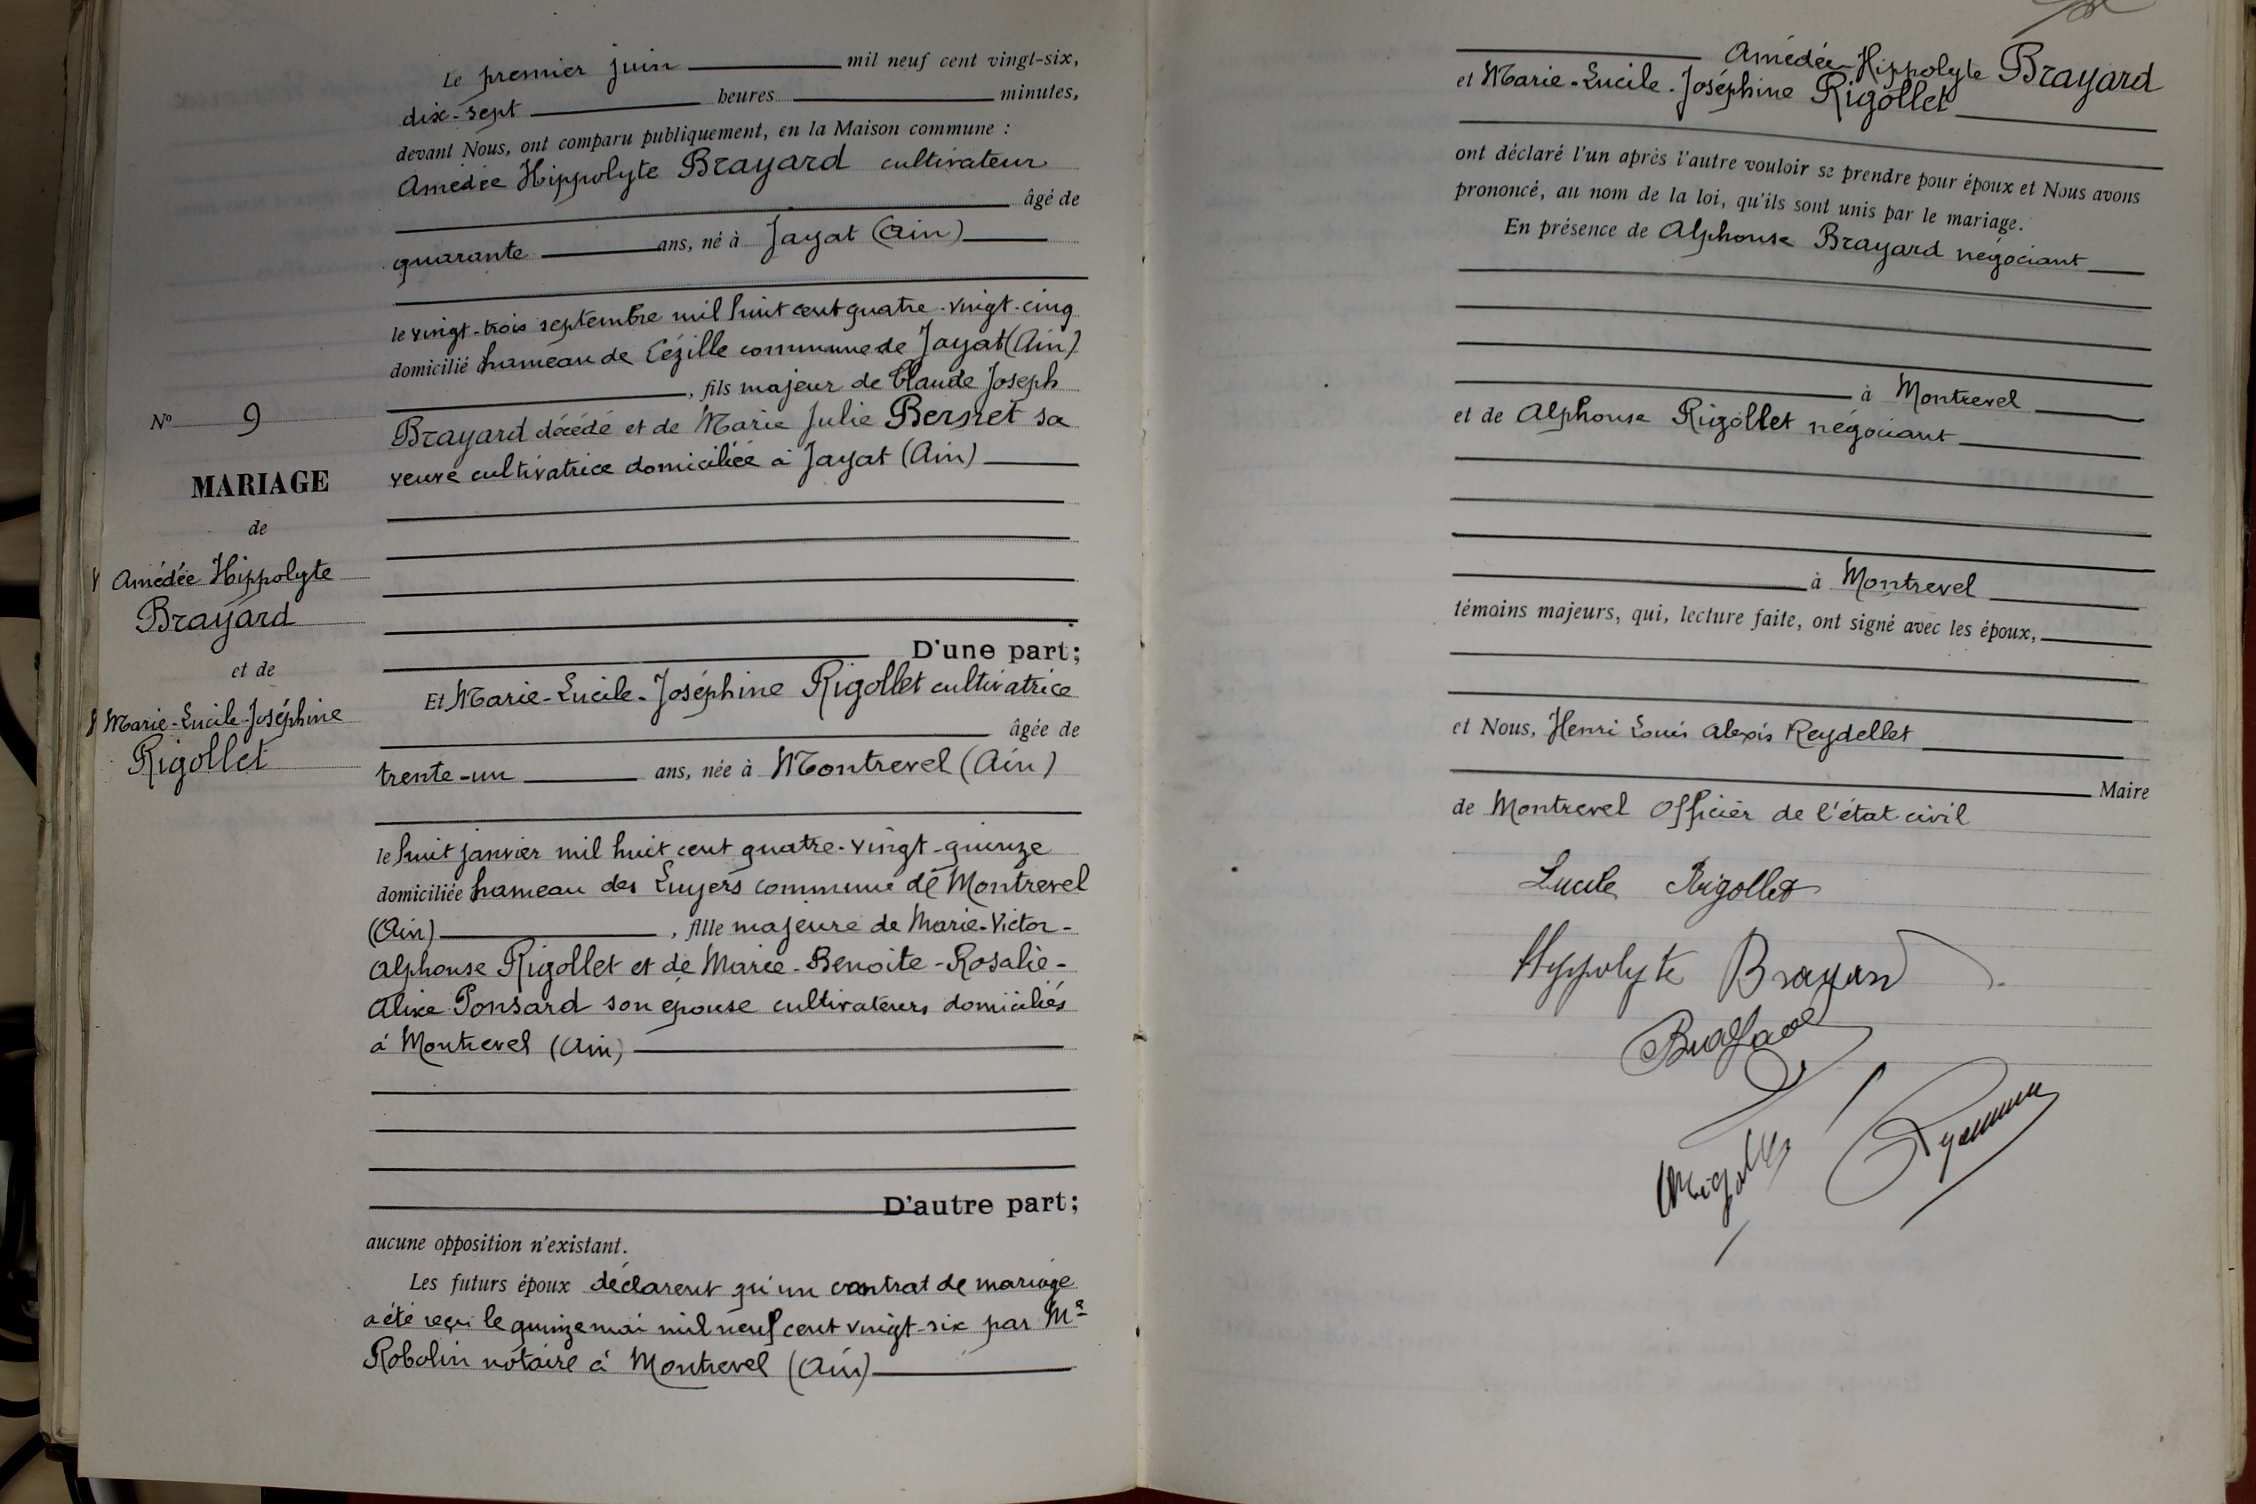 Le premier juin mil neuf cent vingt-six,
dix-sept heures minutes,
devant Nous, ont comparu publiquement, en la Maison commune :
Amédée Hippolyte Brayard cultivateur
âgé de
quarante ans, né à Jayat (Ain)
le vingt-trois septembre mil huit cent quatre-vingt-cinq
domicilié hameau de Cézille commune de Jayat (Ain)
, fils majeur de Claude Joseph
Brayard décédé et de Marie Julie Bernet sa
veuve cultivatrice domiciliée à Jayat (Ain)
D'une part;
Et Marie-Lucile-Joséphine Rigollet cultivatrice
âgée de
trente-un ans, née à Montrevel (Ain)
le huit janvier mil huit cent quatre-vingt-quinze
domiciliée hameau des Luyers commune de Montrevel
(Ain) , fille majeure de Marie-Victor-
Alphonse Rigollet et de Marie-Benoite-Rosalie-
Alixe Ponsard son épouse cultivateurs domiciliés
à Montrevel (Ain)
D'autre part;
aucune opposition n'existant.
Les futurs époux déclarent qu'un contrat de mariage
a été reçu le quinze mai mil neuf cent vingt-six par Me
Robolin notaire à Montrevel (Ain)
No 9
MARIAGE
de
Amédée Hippolyte
Brayard
et de
Marie-Lucile-Joséphine
Rigollet
Amédée Hippolyte Brayard
et Marie-Lucile-Joséphine Rigollet
ont déclaré l'un après l'autre vouloir se prendre pour époux et Nous avons
prononcé, au nom de la loi, qu'ils sont unis par le mariage.
En présence de Alphonse Brayard négociant
à Montrevel
et de Alphonse Rigollet négociant
à Montrevel
témoins majeurs, qui, lecture faite, ont signé avec les époux,
et Nous, Henri Louis Alexis Reydellet
Maire
de Montrevel Officier de l'état civil
Lucile Rigollet
Hyppolyte Brayard